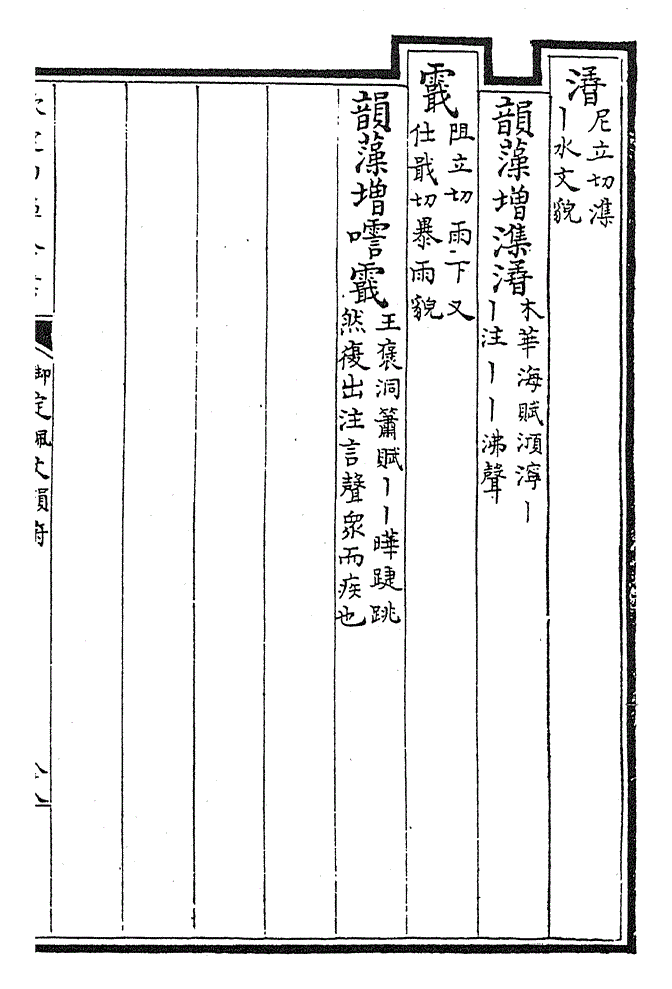 㵫
尼立切潗
丨水文貌
韻藻增潗㵫
木華海賦澒濘丨
丨注丨丨沸聲
霵
阻立切雨下又
仕戢切暴雨貌
韻藻增霵
王襃洞簫賦丨丨曄踕跳
然復出注言聲衆而疾也
欽定四庫全書
御定佩文韻府